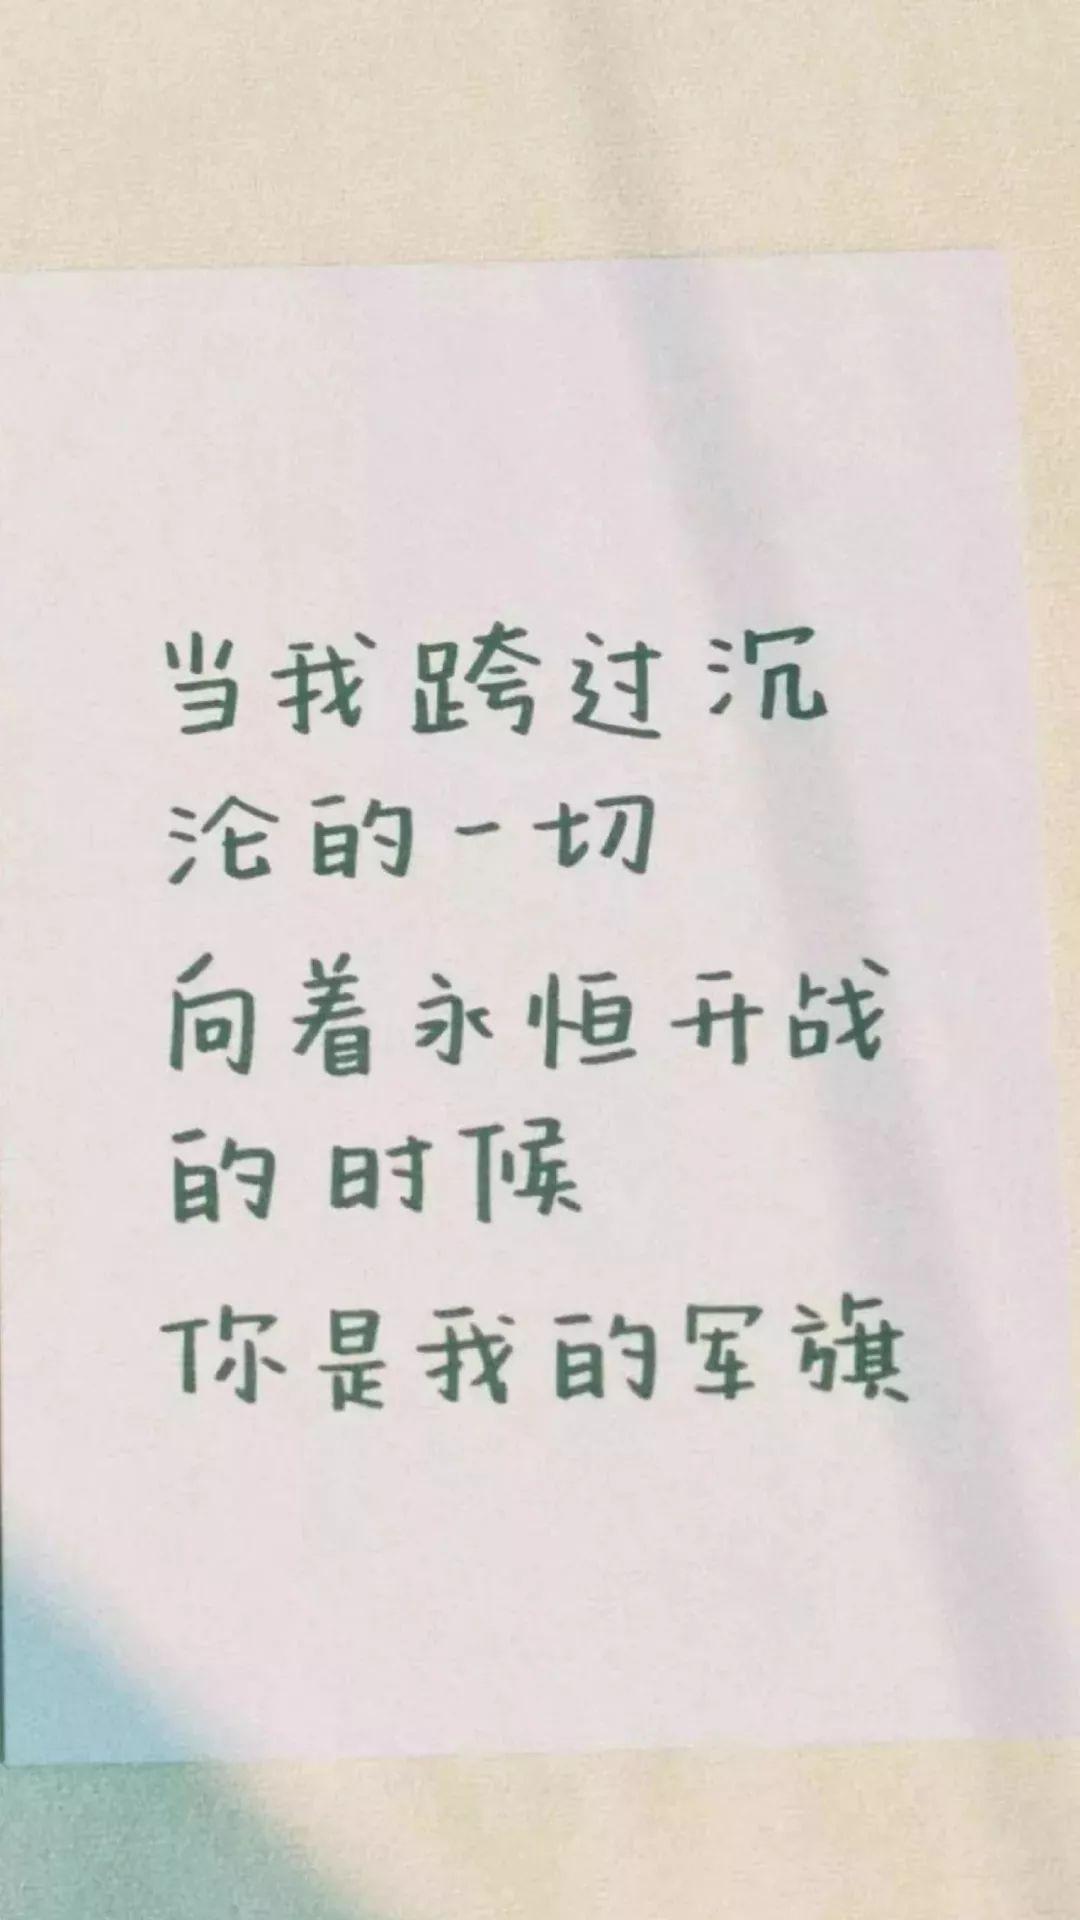 当我跨过沉
沦的一切
向着永恒开战
的时候
你是我的军旗